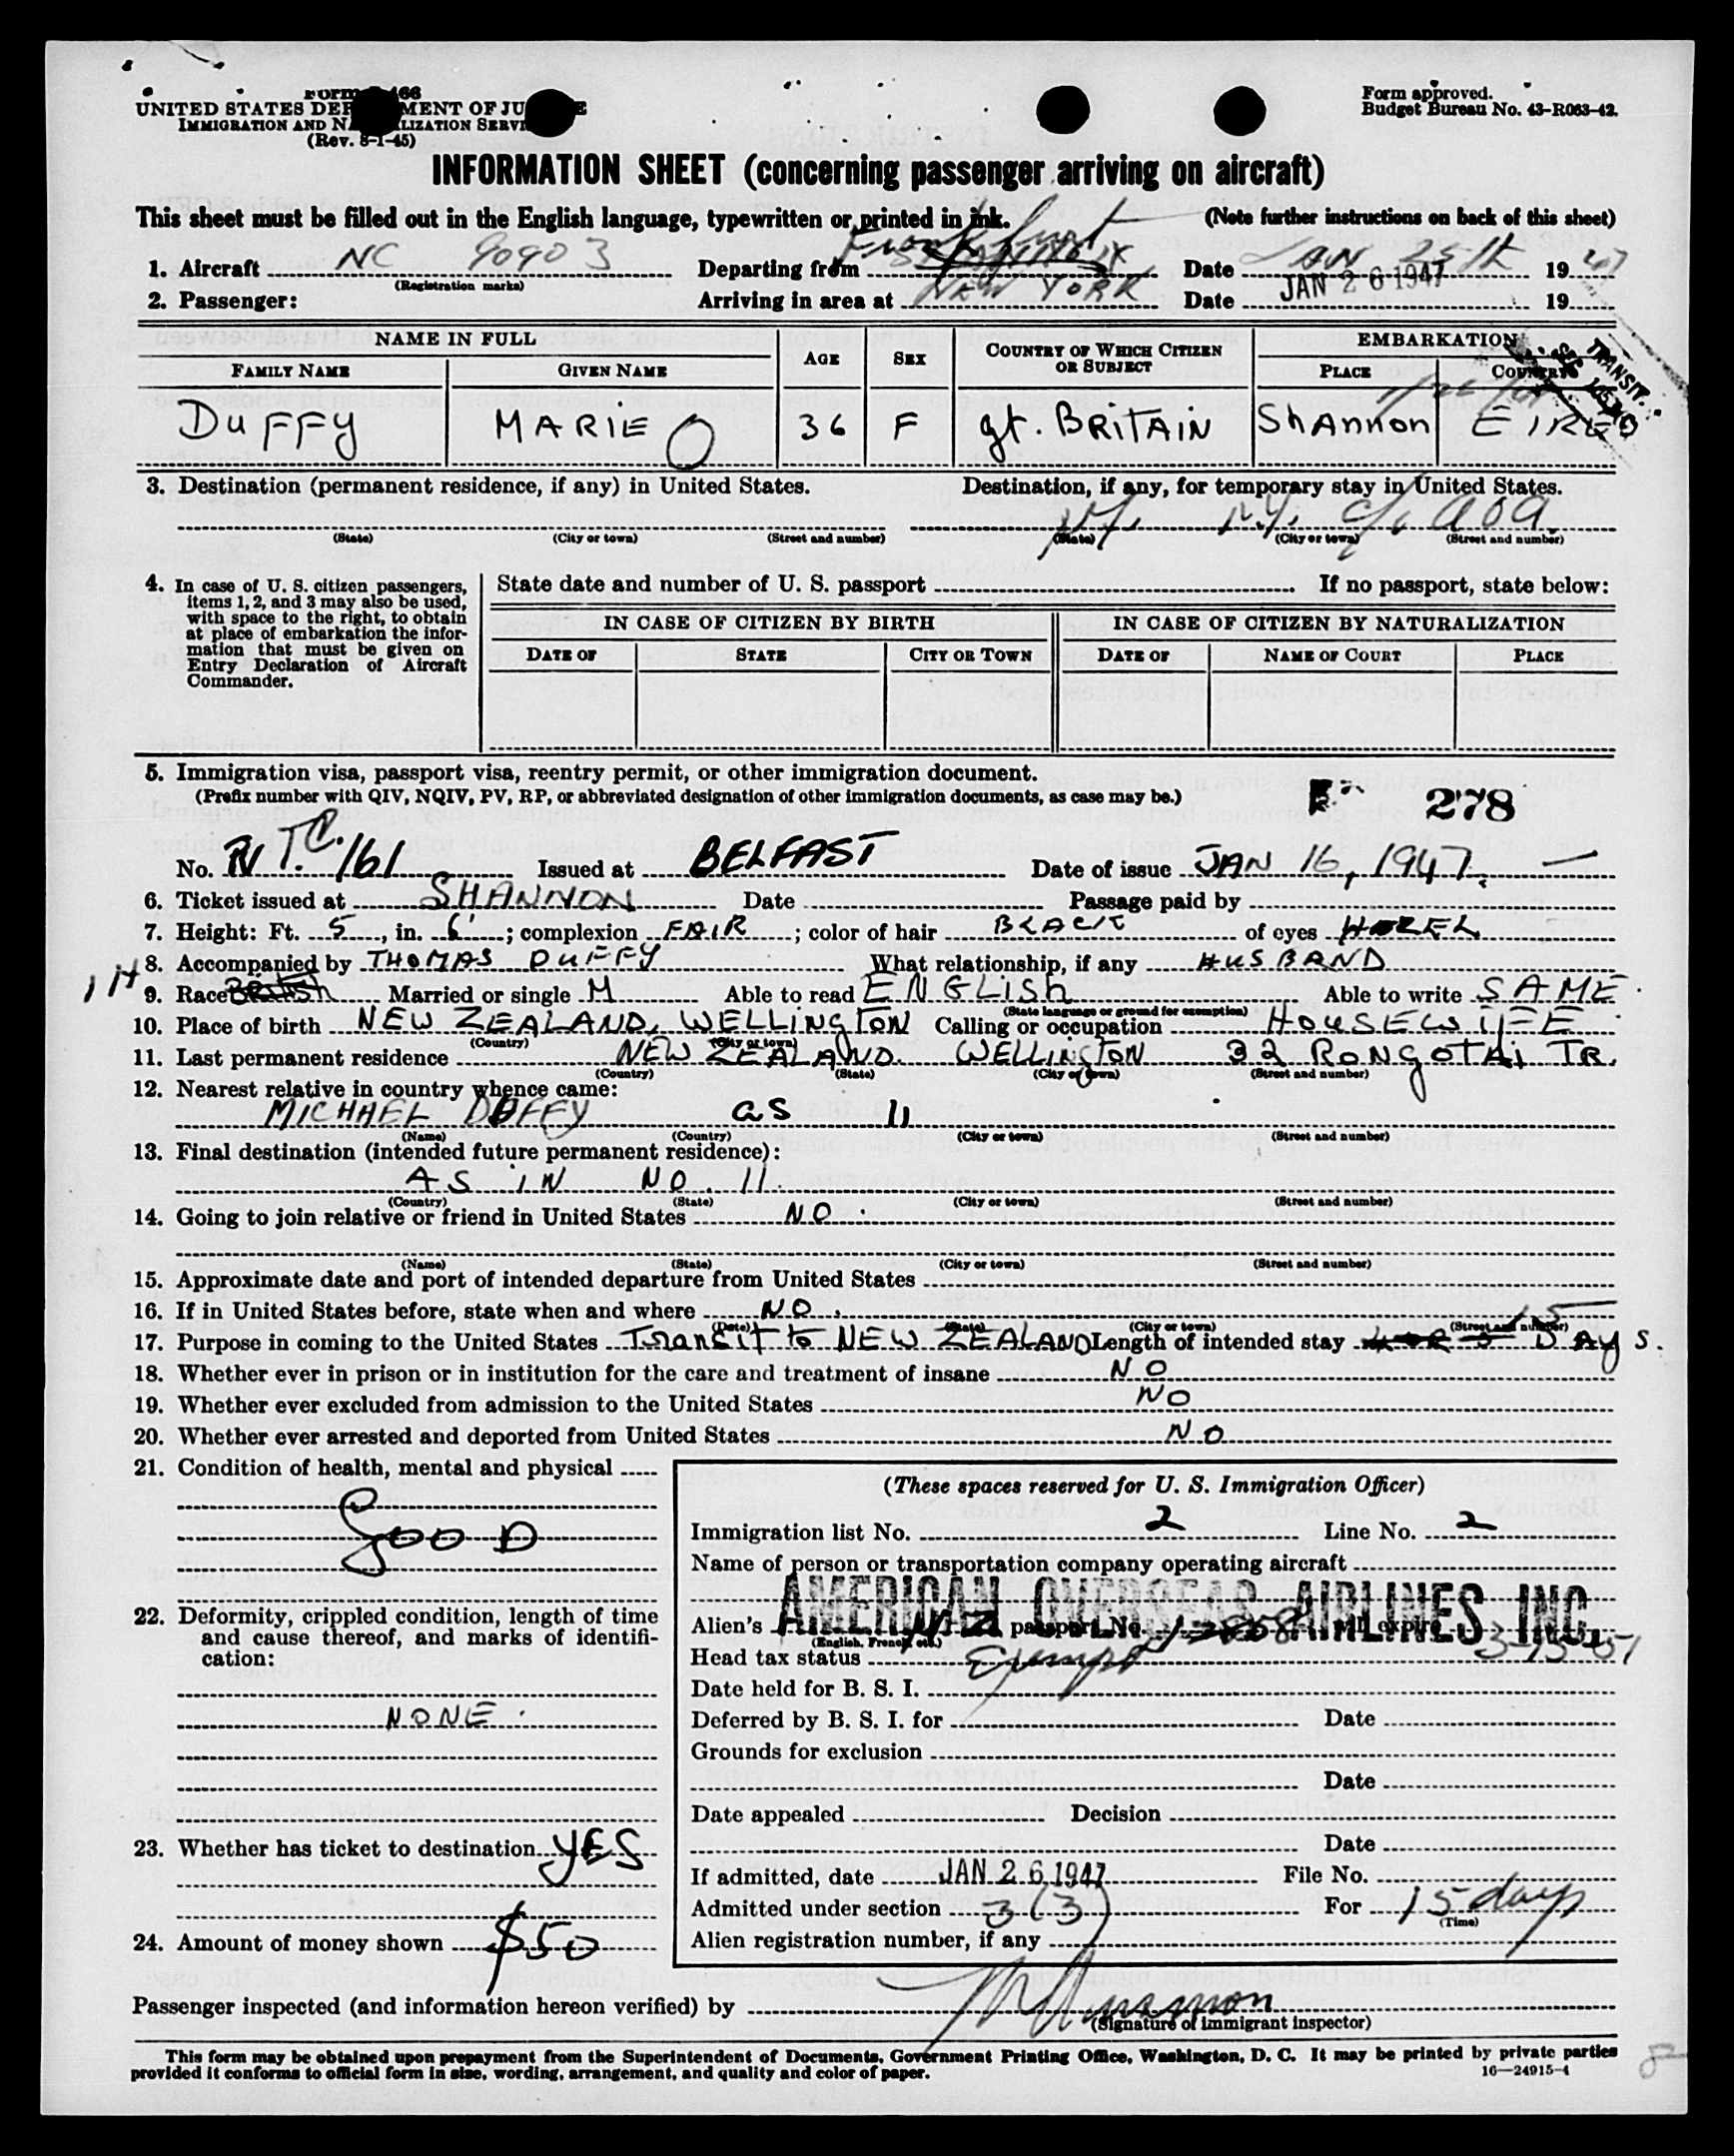 Form 466
UNITED STATES DEPARTMENT OF JUSTICE
IMMIGRATION AND NATURALIZATION SERVICE
(Rev. 8-1-45)
Form approved.
Budget Bureau No. 43-R063-42.
INFORMATION SHEET (concerning passenger arriving on aircraft)
This sheet must be filled out in the English language, typewritten or printed in ink. (Note further instructions on back of this sheet)
Frankfurt
1. Aircraft NC 90903 Departing from Date JAN 25th 1947
(Registration marks)
2. Passenger: Arriving in area at NEW YORK Date JAN 26 1947 19
NAME IN FULL AGE SEX COUNTRY OF WHICH CITIZEN OR SUBJECT EMBARKATION
FAMILY NAME GIVEN NAME PLACE COUNTRY
TRANSIT.
DUFFY MARIE O 36 F gt. BRITAIN ShAnnon EIRE
3. Destination (permanent residence, if any) in United States. Destination, if any, for temporary stay in United States.
N.Y. N.Y. c/o AOA.
(State) (City or town) (Street and number) (State) (City or town) (Street and number)
4. In case of U. S. citizen passengers, items 1, 2, and 3 may also be used, with space to the right, to obtain at place of embarkation the information that must be given on Entry Declaration of Aircraft Commander.
State date and number of U. S. passport If no passport, state below:
IN CASE OF CITIZEN BY BIRTH IN CASE OF CITIZEN BY NATURALIZATION
DATE OF STATE CITY OR TOWN DATE OF NAME OF COURT PLACE
5. Immigration visa, passport visa, reentry permit, or other immigration document.
(Prefix number with QIV, NQIV, PV, RP, or abbreviated designation of other immigration documents, as case may be.)
278
No. T.C./161 Issued at BELFAST Date of issue JAN 16, 1947.
6. Ticket issued at SHANNON Date Passage paid by
7. Height: Ft. 5, in. 6; complexion FAIR; color of hair BLACK of eyes HAZEL
8. Accompanied by THOMAS DUFFY What relationship, if any HUSBAND
9. Race British Married or single M Able to read ENGLISh Able to write SAME.
(State language or ground for exemption)
10. Place of birth NEW ZEALAND, WELLINGTON Calling or occupation HOUSEWIFE
(Country) (City or town)
11. Last permanent residence NEW ZEALAND. WELLINGTON 32 RONGOTAI TR.
(Country) (State) (City or town) (Street and number)
12. Nearest relative in country whence came:
MICHAEL DUFFY as 11
(Name) (Country) (City or town) (Street and number)
13. Final destination (intended future permanent residence):
AS IN NO. 11.
(Country) (State) (City or town) (Street and number)
14. Going to join relative or friend in United States NO.
(Name) (State) (City or town) (Street and number)
15. Approximate date and port of intended departure from United States
16. If in United States before, state when and where NO.
(Date) (State) (City or town) (Street and number)
17. Purpose in coming to the United States Transit to NEW ZEALAND Length of intended stay 15 DAys.
18. Whether ever in prison or in institution for the care and treatment of insane NO
19. Whether ever excluded from admission to the United States NO
20. Whether ever arrested and deported from United States NO
21. Condition of health, mental and physical
GOOD
22. Deformity, crippled condition, length of time and cause thereof, and marks of identification:
NONE.
23. Whether has ticket to destination YES
24. Amount of money shown $50
(These spaces reserved for U. S. Immigration Officer)
Immigration list No. 2 Line No. 2
Name of person or transportation company operating aircraft
AMERICAN OVERSEAS AIRLINES INC.
Alien's N Z passport No. will expire 3-13-51
(English, French, etc.)
Head tax status Exempt
Date held for B. S. I.
Deferred by B. S. I. for Date
Grounds for exclusion
Date
Date appealed Decision
Date
If admitted, date JAN 26 1947 File No.
Admitted under section 3(3) For 15 days
(Time)
Alien registration number, if any
Passenger inspected (and information hereon verified) by
(Signature of immigrant inspector)
This form may be obtained upon prepayment from the Superintendent of Documents, Government Printing Office, Washington, D. C. It may be printed by private parties
provided it conforms to official form in size, wording, arrangement, and quality and color of paper. 16—24915-1